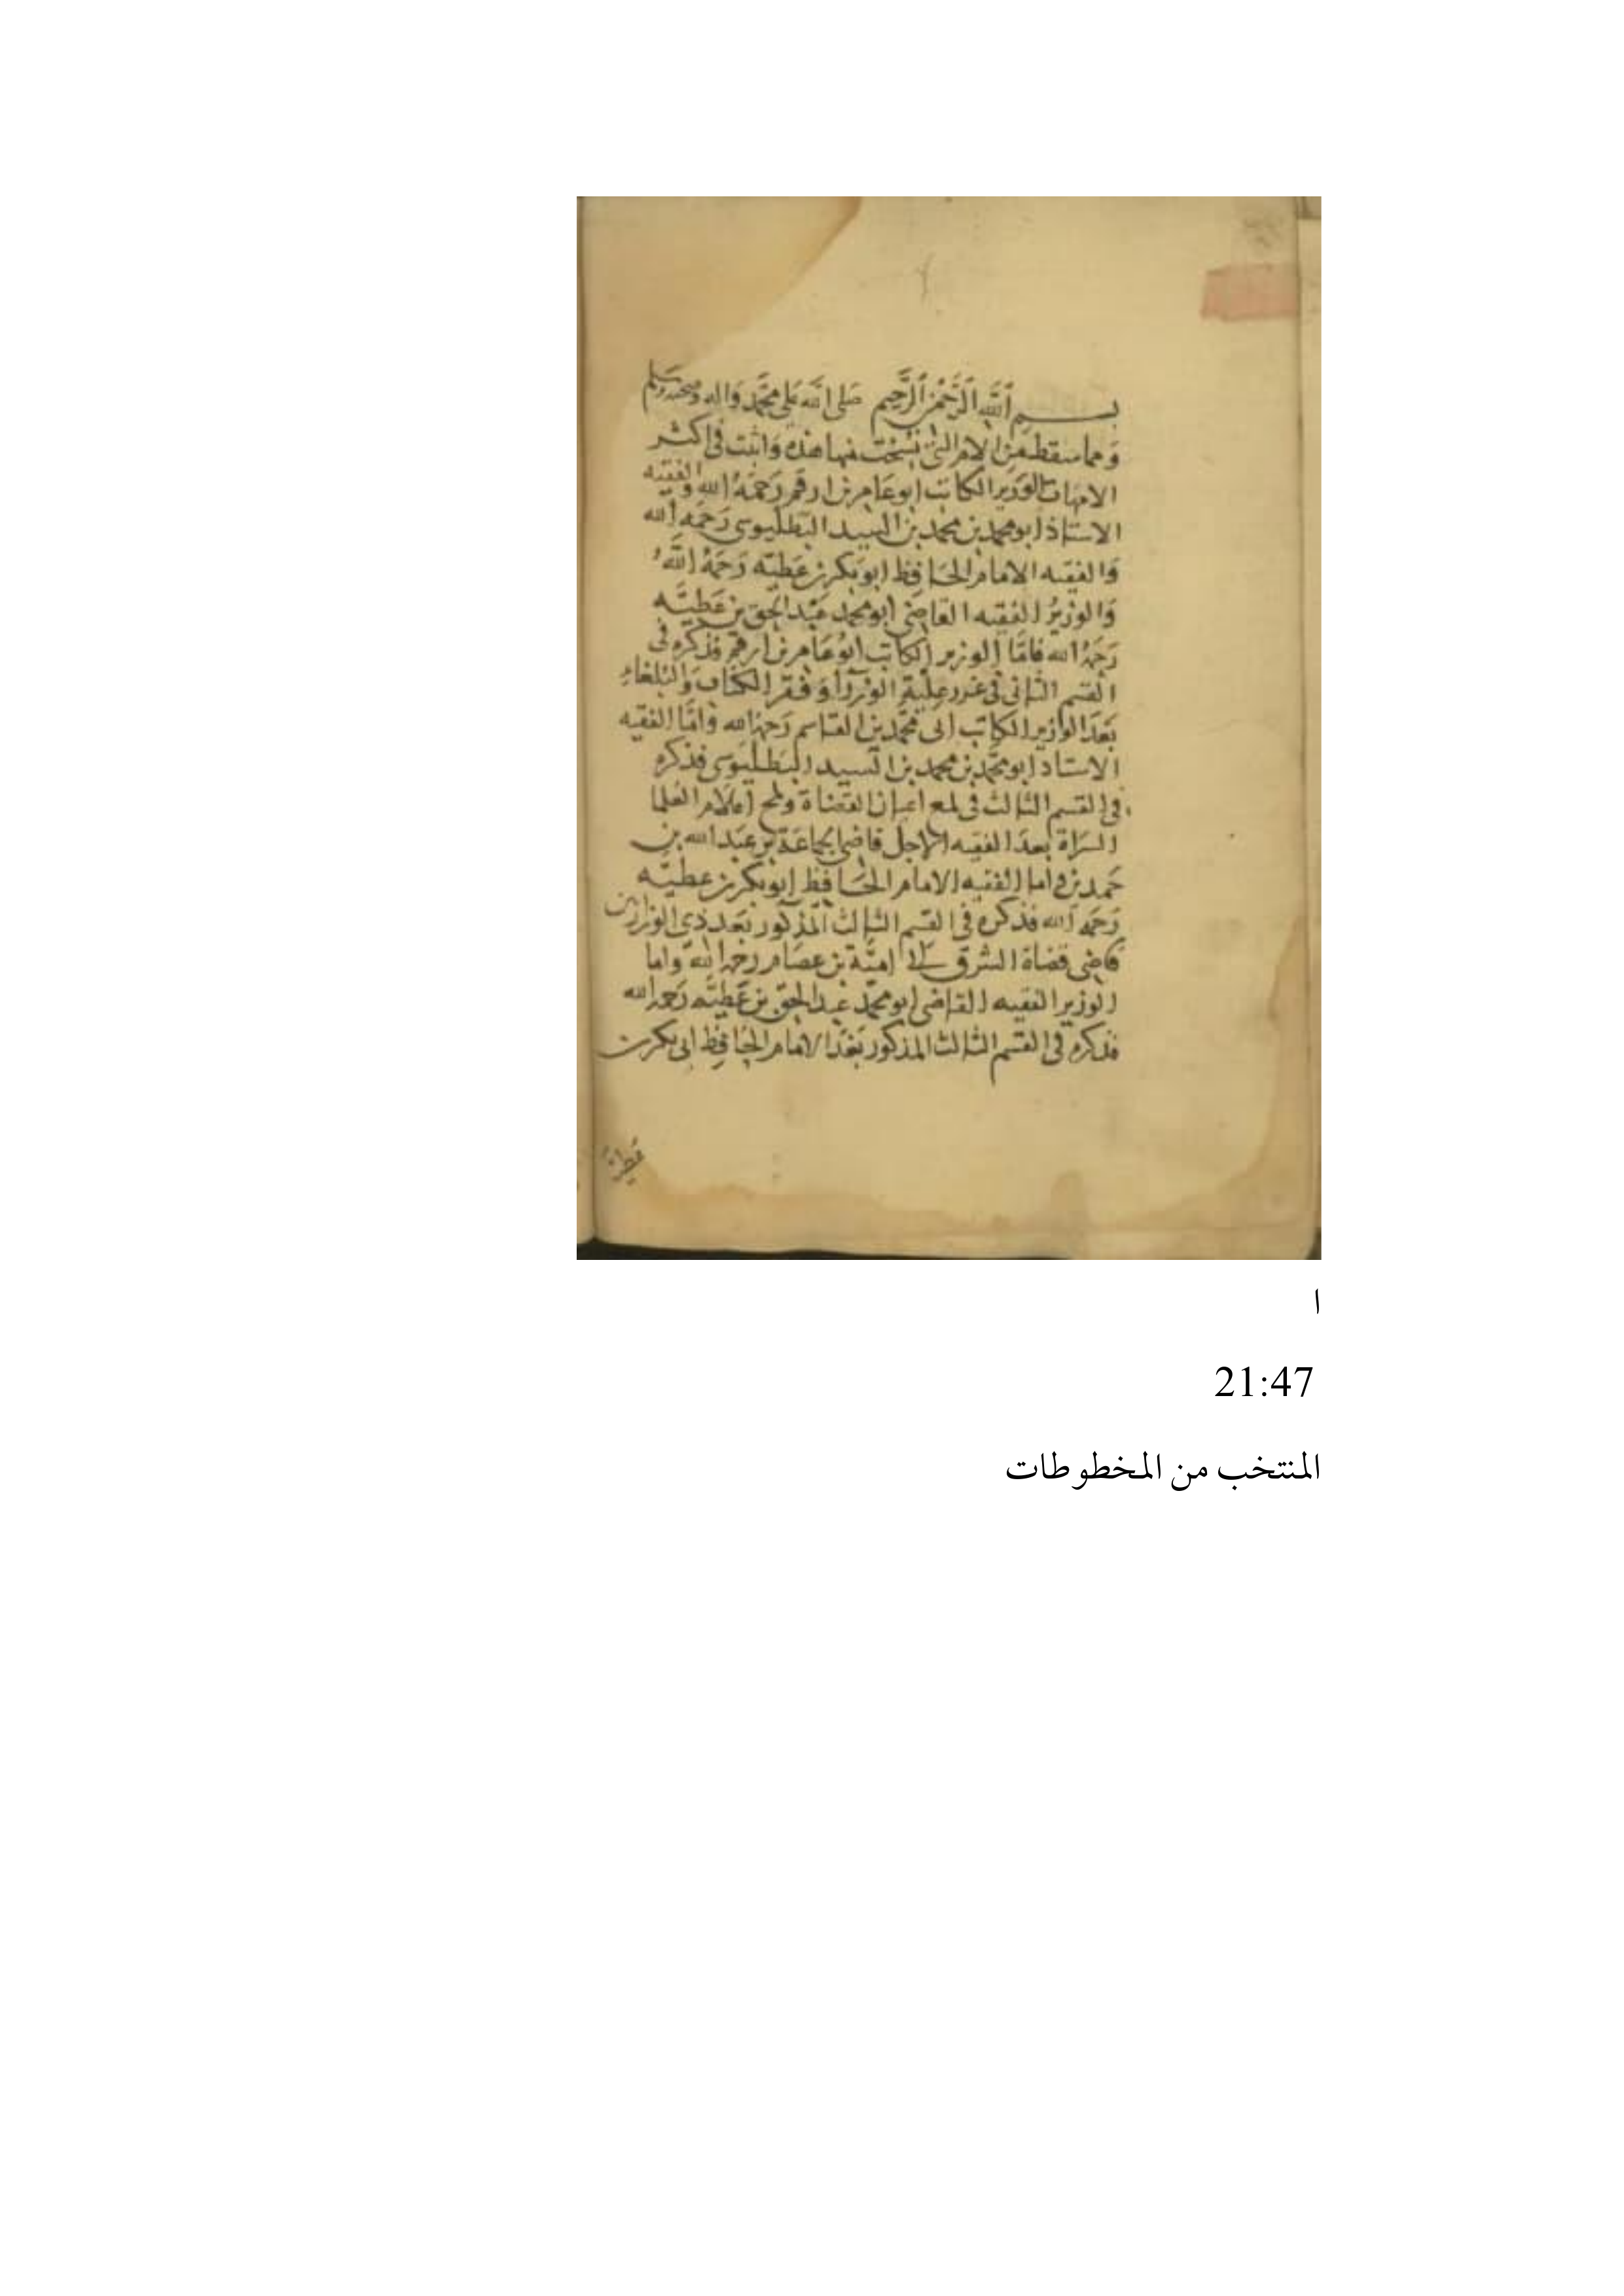 بسم الله الرحمن الرحيم صلى الله على محمد واله وصحبه وسلم
ومما سقط من الام التى نسخت منها هذه واثبت فى اكثر
الامهات الوزير الكاتب ابو عامر بن ارقم رحمه الله والفقيه
الاستاذ ابو محمد بن محمد بن السيد البطليوسى رحمه الله
والفقيه الامام الحافظ ابو بكر بن عطيه رحمه الله
والوزير الفقيه القاضى ابو محمد عبد الحق بن عطيه
رحمه الله فاما الوزير الكاتب ابو عامر بن ارقم فذكره فى
القسم الثانى فى غرر علية الوزرآ وفقر الكتاب والبلغاء
بعد الوزير الكاتب ابى محمد بن القاسم رحمه الله واما الفقيه
الاستاذ ابو محمد بن محمد بن السيد البطليوسى فذكره
فى القسم الثالث فى لمع اعيان القضاة ولمح اعلام العلما
السراة بعد الفقيه الاجل قاضى الجماعة بن عبد الله بن
حمدين واما الفقيه الامام الحافظ ابو بكر بن عطيه
رحمه الله فذكره فى القسم الثالث المذكور بعد ذى الوزارتين
قاضى قضاة الشرق امية بن عصام رحمه الله واما
الوزير الفقيه القاضى ابو محمد عبد الحق بن عطيه رحمه الله
فذكره فى القسم الثالث المذكور بعد الامام الحافظ ابى بكر بن
ا
21:47
المنتخب من المخطوطات